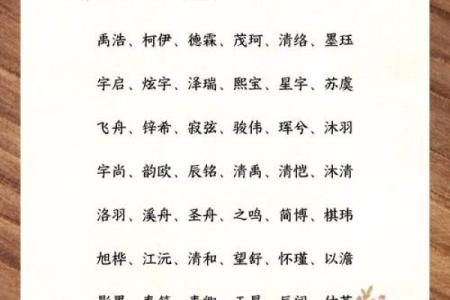 禹浩、柯伊、德霖、茂珂、清络、墨珏
字启、炫字、泽瑞、熙宝、星字、苏虞
飞舟、锌希、寂弦、骏伟、珲兮、沐羽
字尚、韵欧、辰铭、清禹、清恺、沐清
洛羽、溪舟、圣舟、之鸣、简博、棋玮
旭桦、江沅、清和、望舒、怀瑾、以澹